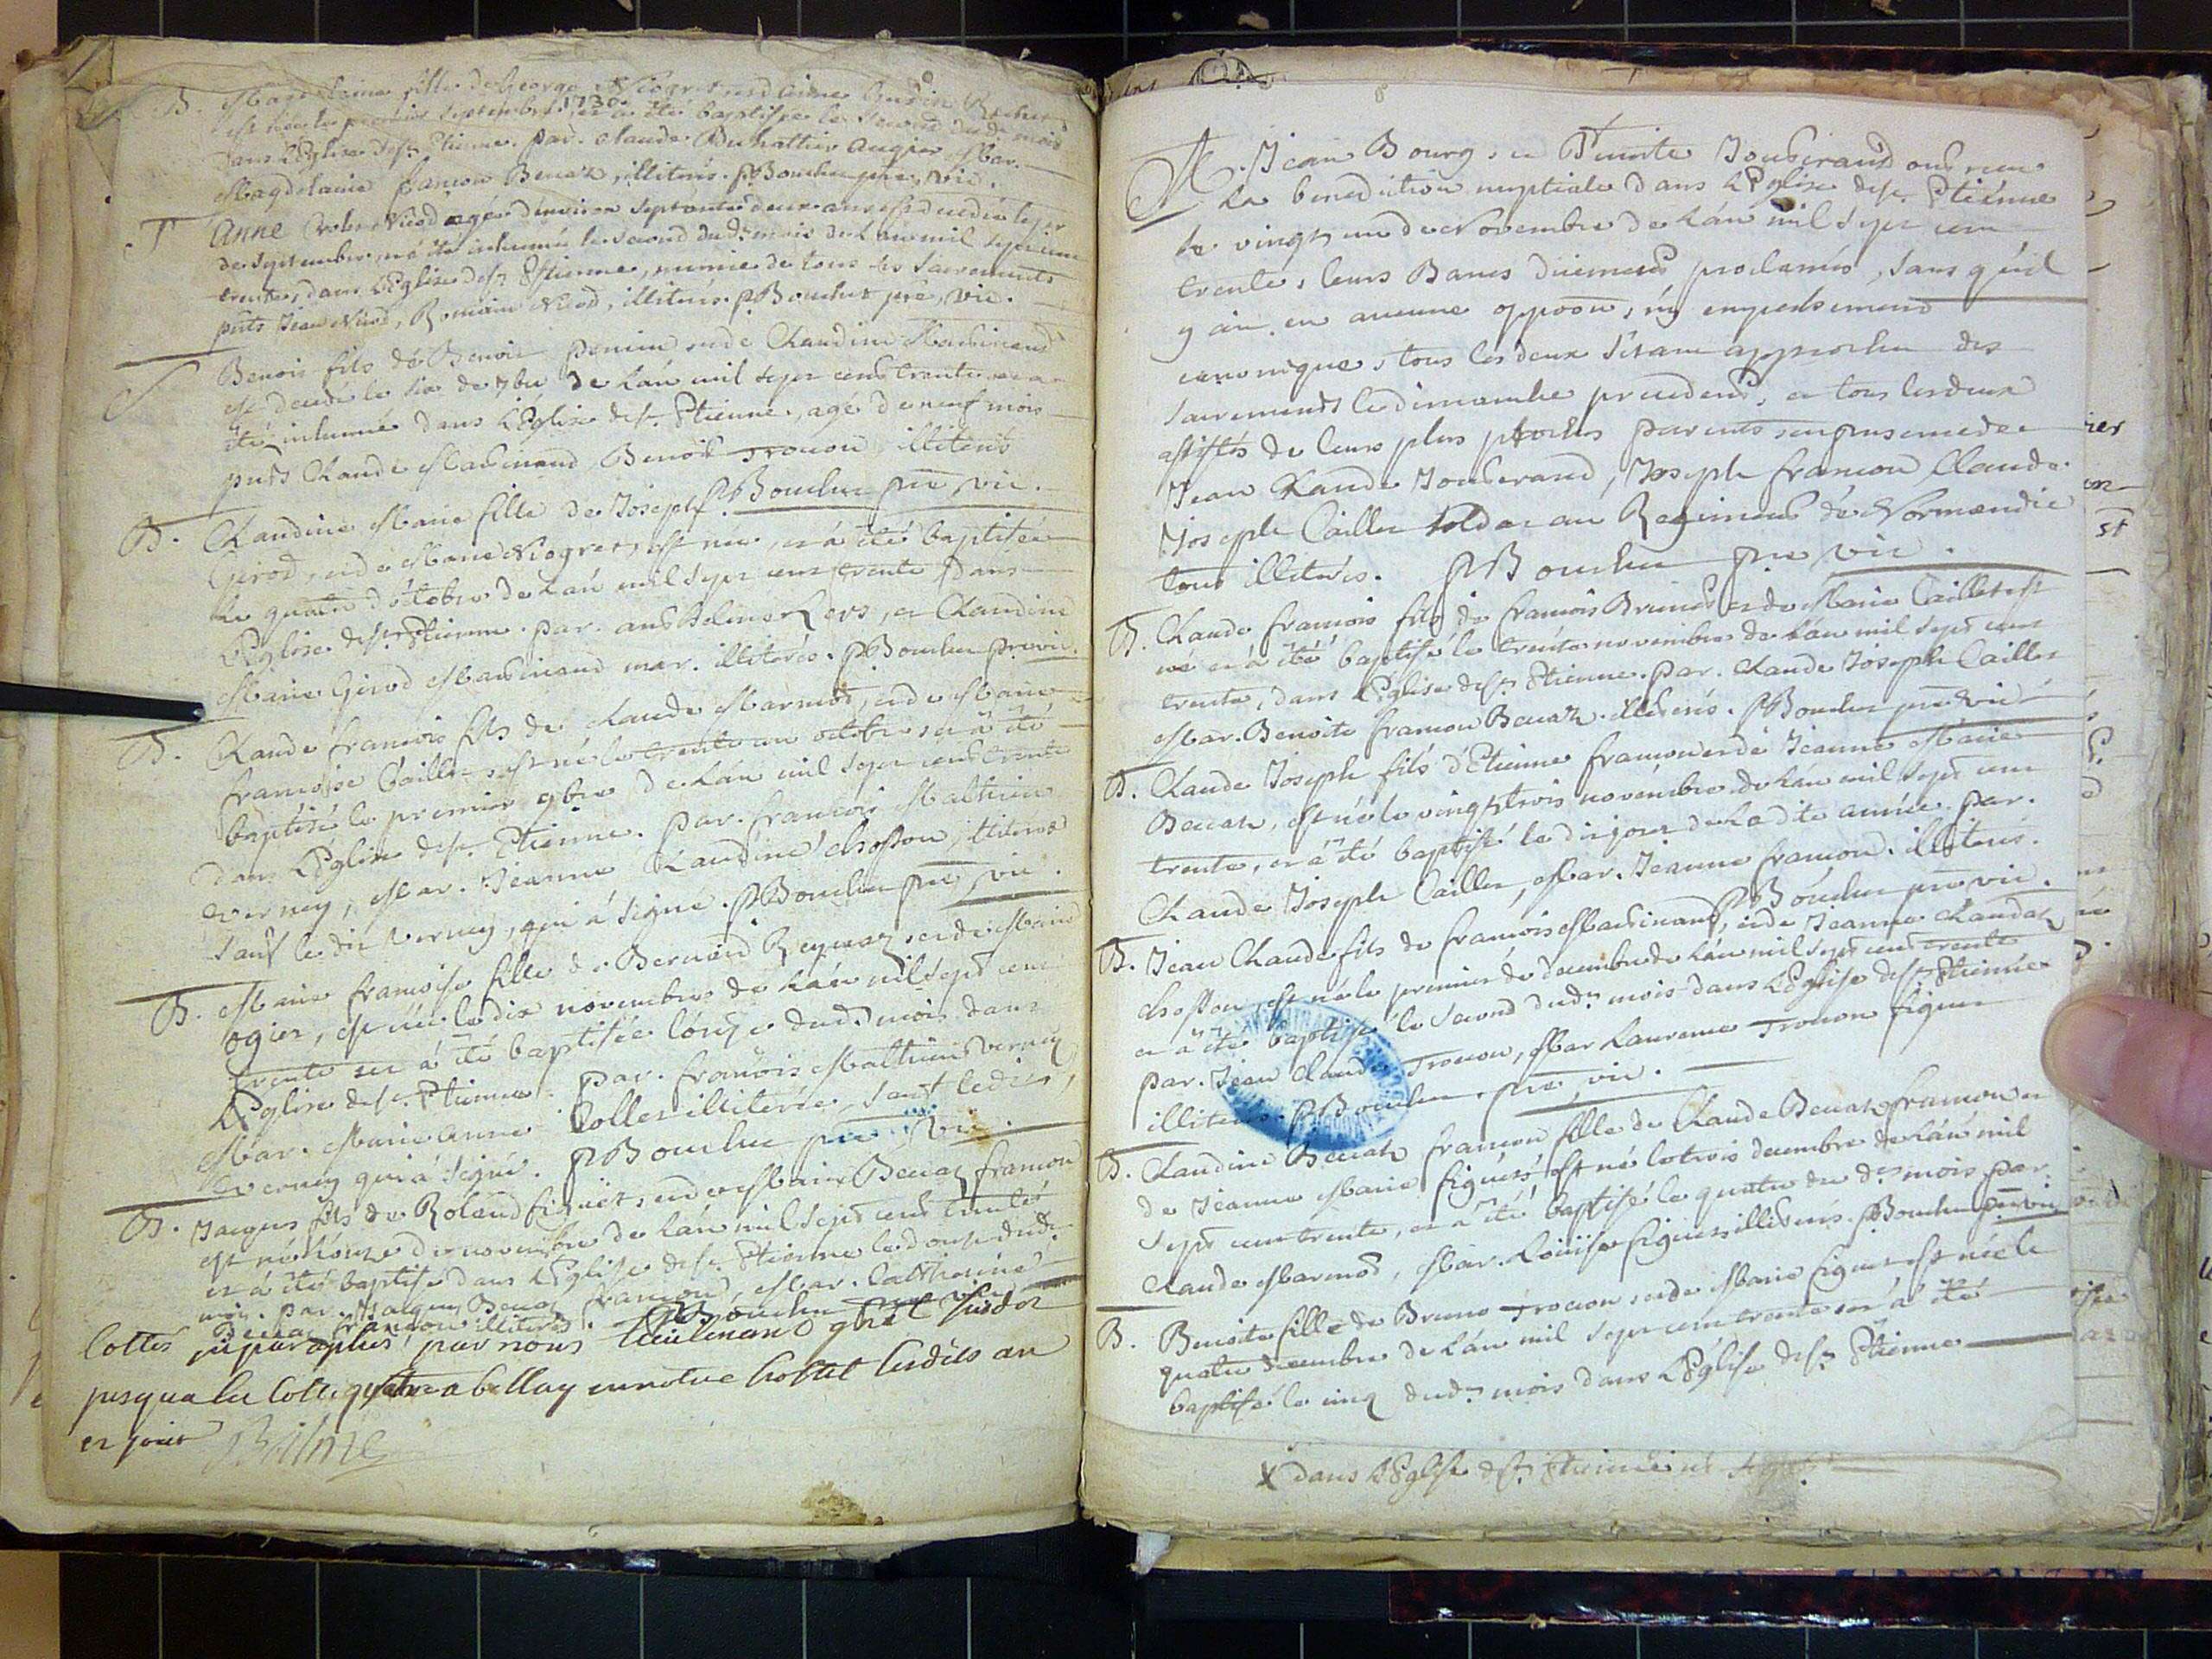 B. Magdelaine fille de George Niogret et d'Anne
est née le premier septembre 1730 et a été baptisée le second dud. mois
dans L'Eglise de St. Etienne. par. Claude Mar.
Magdelaine francon Benaz, illiterés. PBouchu pre, vic.
S Anne Nicod agée d'environ septante deux ans est decedée le per
de septembre, et a été inhumée le second dud. mois de L'an mil sept cent
trente, dans L'Eglise de St. Etienne, munie de tous les Sacrements
pnts Jean Nicod, Romain Nicod, illiterés. PBouchu pre, vic.
S Benoit fils de Benoit et de Claudine Martinand
est decedé le six de 7bre de L'an mil sept cent trente et a
été inhumé dans L'Eglise de St. Etienne, agé de neuf mois
pnts Claude Martinand Benoit Trocon, illiterés
PBouchu pre, vic.
B. Claudine Marie fille de Joseph
Girod, et de Marie Niogret, est née, et a été baptisée
le quatre d'octobre de L'an mil sept cent trente dans
L'Eglise de St. Etienne. par. et Claudine
Marie Girod Martinand mar. illiterés. PBouchu pre vic.
B. Claude francois fils de Claude Marmod, et de Marie
francoise Caillet, est né le trente un octobre et a été
baptisé le premier 9bre de L'an mil sept cent trente
dans L'Eglise de St. Etienne. par. francois Mathieu
Verney, Mar. Jeanne Claudine chosson, illiterés
sauf le dit Verney, qui a signé. PBouchu pre, vic.
B. Marie francoise fille de Bernard et de Marie
ogier, est née le dix novembre de L'an mil sept cent
trente et a été baptisée l'onze dud. mois dans
L'Eglise de St. Etienne. par. francois Mathieu Verney
Mar. Marie anne Collet illiterée, sauf ledit,
Verney qui a signé. PBouchu pre vic.
B. Jaques fils de Roland figuet, et de Marie Benaz francon
est né l'onze de novembre de L'an mil sept cent trente
et a été baptisé dans L'Eglise de St. Etienne le douze dud.
mois. par. Jaques Benaz francon, Mar. Catherine
Benaz francon illiterés. PBouchu pre vic
Cottés et paraphés par nous Lieutenant gnal susdit
jusqua la cotte quatre a bellay en notre hostel lesdits an
et jour
M. Jean Bourg, et Benoite Jouberand ont recu
la benediction nuptiale dans L'Eglise de St. Etienne
le vingt un de Novembre de L'an mil sept cent
trente, leurs Bancs düement proclamés, sans qu'il
y ait eu aucune opposon, ny empechement
canonique, tous les deux s'etant approchés des
sacrements le dimanche precedent, et tous les deux
assistés de leurs plus proches parents, en presence de
Jean Claude Jouberand, Joseph francon Claude
Joseph Caillet soldat au Regiment de Normandie
tous illiterés. PBouchu pre vic.
B. Claude francois fils de francois Brunet et de Marie Caillet est
né et a été baptisé le trente novembre de L'an mil sept cent
trente, dans L'Eglise de St. Etienne. par. Claude Joseph Caillet
Mar. Benoite francon Benaz. illiterés. PBouchu pre vic
B. Claude Joseph fils d'Etienne francon et de Jeanne Marie
Benaz, est né le vingt trois novembre de L'an mil sept cent
trente, et a été baptisé le dit jour de la dite année. par.
Claude Joseph Caillet, Mar. Jeanne francon. illiterés.
PBouchu pre vic.
B. Jean Claude fils de francois Martinand, et de Jeanne Claudaz
chosson, est né le premier de decembre de L'an mil sept cent trente
et a été baptisé le second dud. mois dans L'Eglise de St. Etienne
par. Jean Claude Trocon, Mar Laurence Trocon figuet
illiterés. PBouchu. pre, vic.
B. Claudine Benaz francon fille de Claude Benaz francon et
de Jeanne Marie figuet est né le trois decembre de L'an mil
sept cent trente, et a été baptisé le quatre du d. mois par.
Claude Marmod, Mar. Loüise figuet illiterés. PBouchu pre vic
B. Benoite fille de Bruno Trocon, et de Marie figuet est née le
quatre decembre de L'an mil sept cent trente et a été
baptisé le cinq dud. mois dans L'Eglise de St. Etienne
X dans L'Eglise de St. Etienne